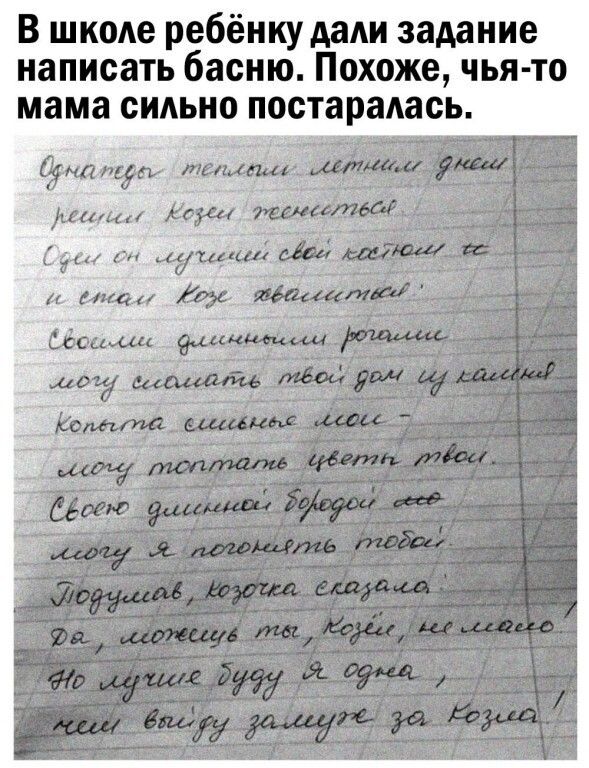 В школе ребёнку дали задание
написать басню. Похоже, чья-то
мама сильно постаралась.
Однажды теплым летним днем
решил Козел жениться
Одел он лучший свой костюм и
и стал Козе хвалиться:
Своими длинными рогами
могу сломать твой дом из камня
Копыта сильные мои -
могу топтать цветы твои.
Своею длинной бородой мо
могу я погонять тобой.
Подумав, козочка сказала:
Да, можешь ты, Козёл, не мало!
Но лучше буду я одна,
чем выйду замуж за Козла!